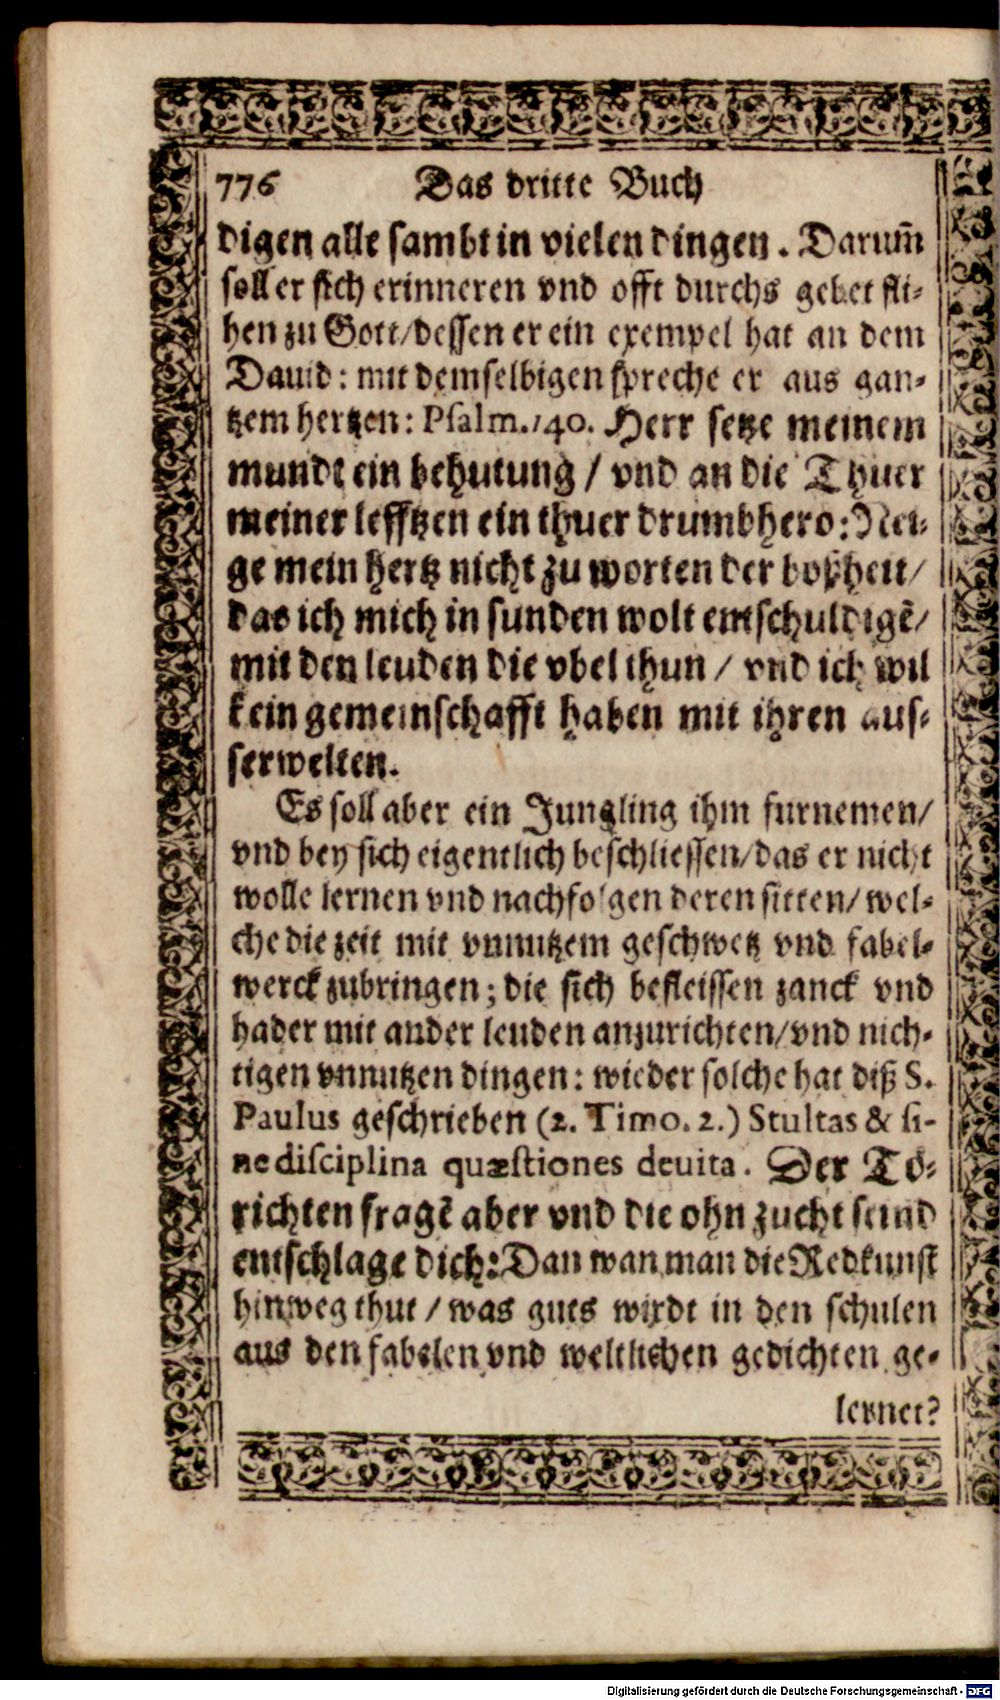 776 Das dritte Buch
digen alle sambt in vielen dingen. Darum̃
soll er sich erinneren vnd offt durchs gebet fli-
hen zu Gott/dessen er ein exempel hat an dem
Dauid: mit demselbigen spreche er aus gan-
tzem hertzen: Psalm. 140. Herr setze meinem
mundt ein behutung / vnd an die Thuer
meiner lefftzen ein thuer drumbhero: Nei-
ge mein hertz nicht zu worten der boßheit/
das ich mich in sunden wolt entschuldigẽ/
mit den leuden die vbel thun / vnd ich wil
kein gemeinschafft haben mit ihren aus-
serwelten.
Es soll aber ein Jungling ihm furnemen/
vnd bey sich eigentlich beschliessen/das er nicht
wolle lernen vnd nachfolgen deren sitten/ wel-
che die zeit mit vnnutzem geschwetz vnd fabel-
werck zubringen; die sich befleissen zanck vnd
hader mit ander leuden anzurichten/vnd nich-
tigen vnnutzen dingen: wieder solche hat diß S.
Paulus geschrieben (2. Timo. 2.) Stultas & si-
ne disciplina quæstiones deuita. Der Tö-
richten fragẽ aber vnd die ohn zucht seind
entschlage dich: Dan wan man die Redkunst
hinweg thut / was guts wirdt in den schulen
aus den fabelen vnd weltlichen gedichten ge-
lernet?
Digitalisierung gefördert durch die Deutsche Forschungsgemeinschaft - DFG